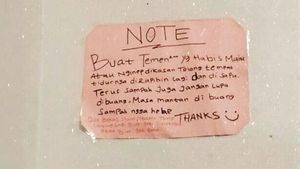 NOTE
Buat Temen""" yg Habis Main
Atau Nginep dikosan Tolong tempat
tidurnya dirapihin lagi dan di sapu.
Terus Sampah Juga Jangan Lupa
dibuang. Masa mantan di buang
Sampah ngga hehe
THANKS